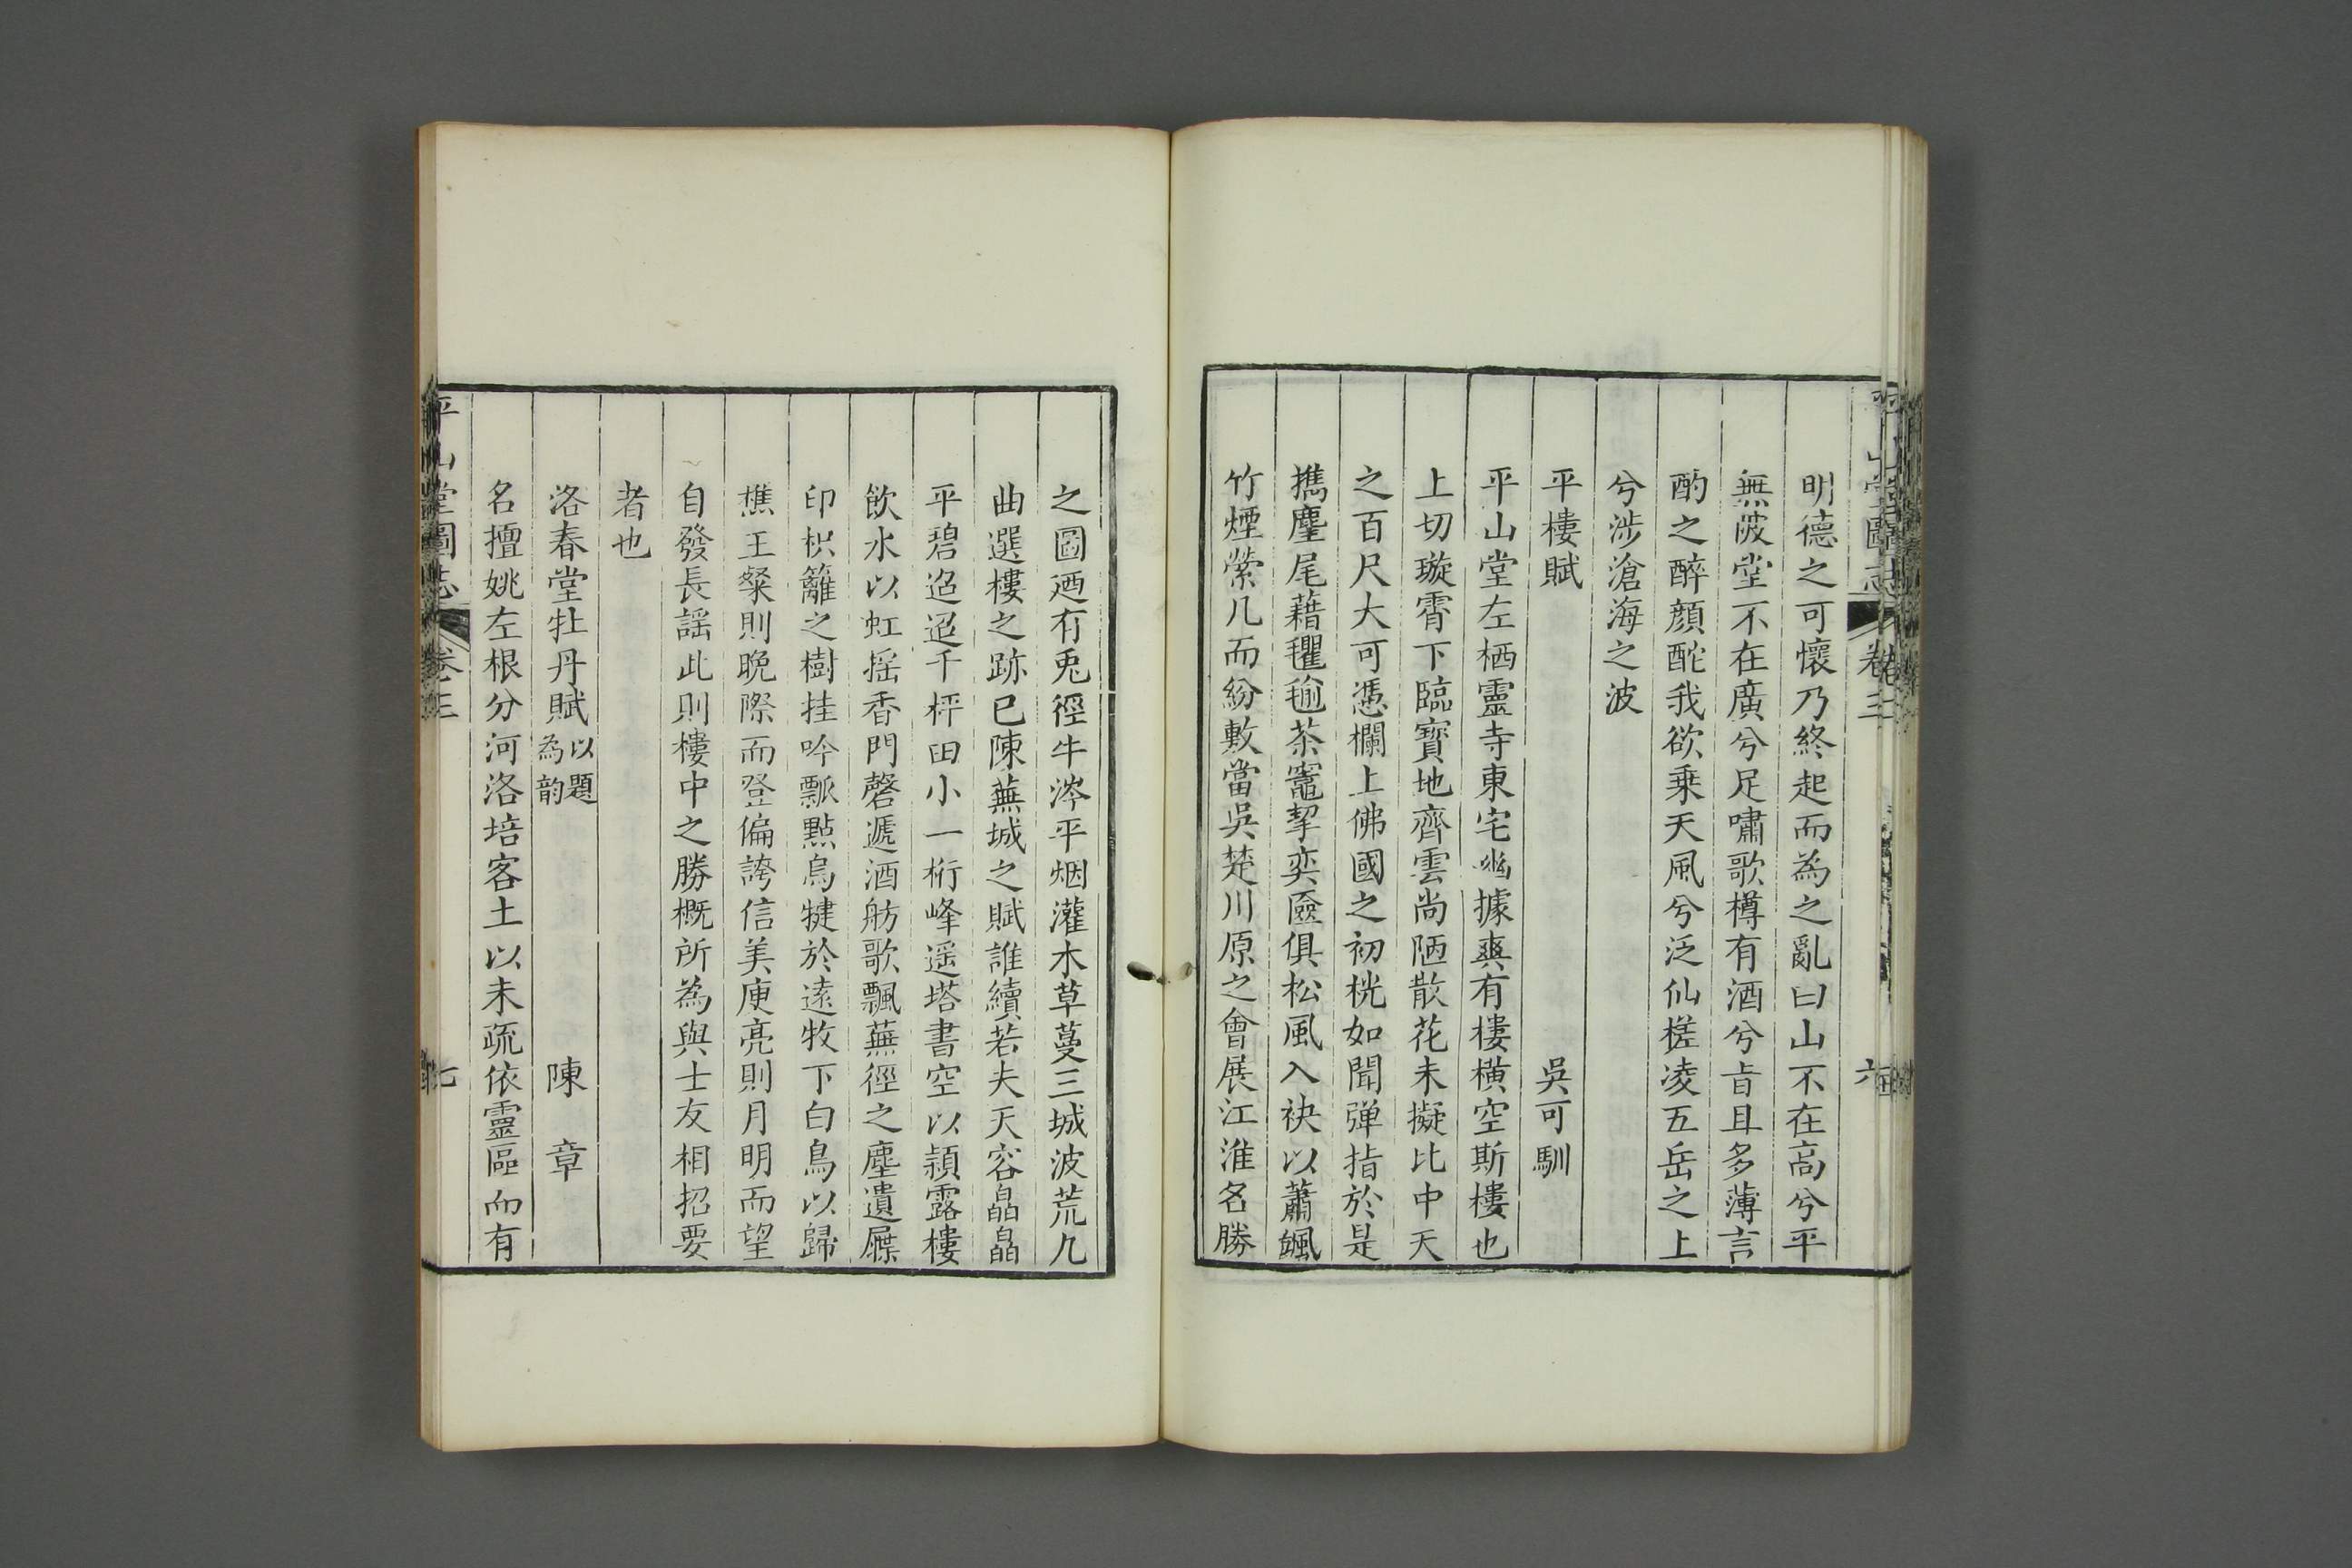 平山堂圖志 卷三 六
明德之可懷乃終起而為之亂曰山不在高兮平
無陂堂不在廣兮足嘯歌樽有酒兮旨且多薄言
酌之醉顏酡我欲乗天風兮泛仙槎凌五岳之上
兮涉滄海之波
平樓賦 吳可馴
平山堂左栖靈寺東宅幽據爽有樓橫空斯樓也
上切璇霄下臨寳地齊雲尚陋散花未擬比中天
之百尺大可憑欄上佛國之初桄如聞彈指於是
攜麈尾藉氍毹茶竈挈奕匳俱松風入袂以蕭颯
竹煙縈几而紛敷當吳楚川原之會展江淮名勝
之圖廼有兎徑牛涔平烟灌木草蔓三城波荒九
曲選樓之跡已陳蕪城之賦誰續若夫天容皛皛
平碧迢迢千枰田小一桁峰遥塔書空以頴露樓
飲水以虹揺香門磬遞酒舫歌飄蕪徑之塵遺屧
印枳籬之樹挂吟瓢點烏犍於遠牧下白鳥以歸
樵王粲則晩際而登偏誇信美庾亮則月明而望
自發長謡此則樓中之勝概所為與士友相招要
者也
洛春堂牡丹賦 以題為韵 陳章
名擅姚左根分河洛培客土以未疏依靈區而有
平山堂圖志 卷三 七